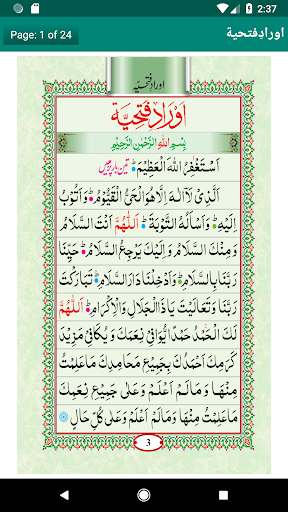 2:37
Page: 1 of 24
اورادِفتحية
اورادِ فتحیّہ
اَوْرَادِ فَتْحِيَّة
بِسْمِ اللهِ الرَّحْمٰنِ الرَّحِيْمِ
اَسْتَغْفِرُ اللهَ الْعَظِيْمَ تین بار پڑھیں
الَّذِىْ لَآ اِلٰهَ اِلَّا هُوَ الْحَىُّ الْقَيُّوْمُ وَاَتُوْبُ
اِلَيْهِ وَاَسْاَلُهُ التَّوْبَةَ اَللّٰهُمَّ اَنْتَ السَّلَامُ
وَمِنْكَ السَّلَامُ وَاِلَيْكَ يَرْجِعُ السَّلَامُ حَيِّنَا
رَبَّنَا بِالسَّلَامِ وَاَدْخِلْنَا دَارَ السَّلَامِ تَبَارَكْتَ
رَبَّنَا وَتَعَالَيْتَ يَا ذَا الْجَلَالِ وَالْاِكْرَامِ اَللّٰهُمَّ
لَكَ الْحَمْدُ حَمْدًا يُّوَافِىْ نِعَمَكَ وَيُكَافِئُ مَزِيْدَ
كَرَمِكَ اَحْمَدُكَ بِجَمِيْعِ مَحَامِدِكَ مَا عَلِمْتُ
مِنْهَا وَمَا لَمْ اَعْلَمْ وَعَلٰى جَمِيْعِ نِعَمِكَ
مَا عَلِمْتُ مِنْهَا وَمَا لَمْ اَعْلَمْ وَعَلٰى كُلِّ حَالٍ
3